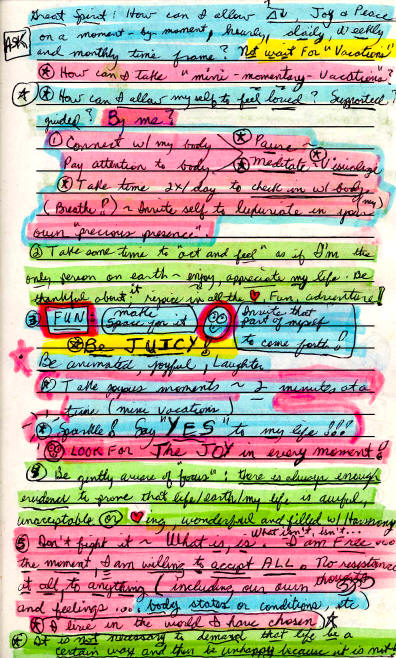 Great Spirit: How can I allow Joy & Peace
on a moment-by-moment, hourly, daily, weekly
ASK
and monthly time frame? Not wait for "Vacations"
How can I take "mini-momentary-vacations"?
How can I allow myself to feel loved? Supported?
guided? By me?
① Connect w/ my body Pause ~
Pay attention to body, Meditate ~ Visualize
Take time 2x/day to check in w/ body
(my)
(Breathe!!) ~ Invite self to luxuriate in your
own "precious presence"
② Take some time to "act and feel" as if I'm the
only person on earth ~ enjoy, appreciate my life. Be
thankful about it; rejoice in all the ♥ Fun, adventure!
③ FUN: make space for it Invite that part of myself to come forth!
Be JUICY!
Be animated, joyful, Laughter
Take joyous moments ~ 2 minutes at a
time (mini vacations)
Sparkle! Say "YES" to my life!!!
LOOK FOR The JOY in every moment!
Be gently aware of "focus"; there is always enough
evidence to prove that life/earth/my life is awful,
unacceptable or ♥ing, wonderful and filled w/ Harmony
what isn't, isn't...
⑤ Don't fight it ~ What is, is. I am Free
the moment I am willing to accept ALL. No resistance
at all, to anything (including our own thoughts
and feelings ... body states or conditions, etc)
I live in the world I have chosen
It is not necessary to demand that life be a
certain way and then be unhappy because it is not